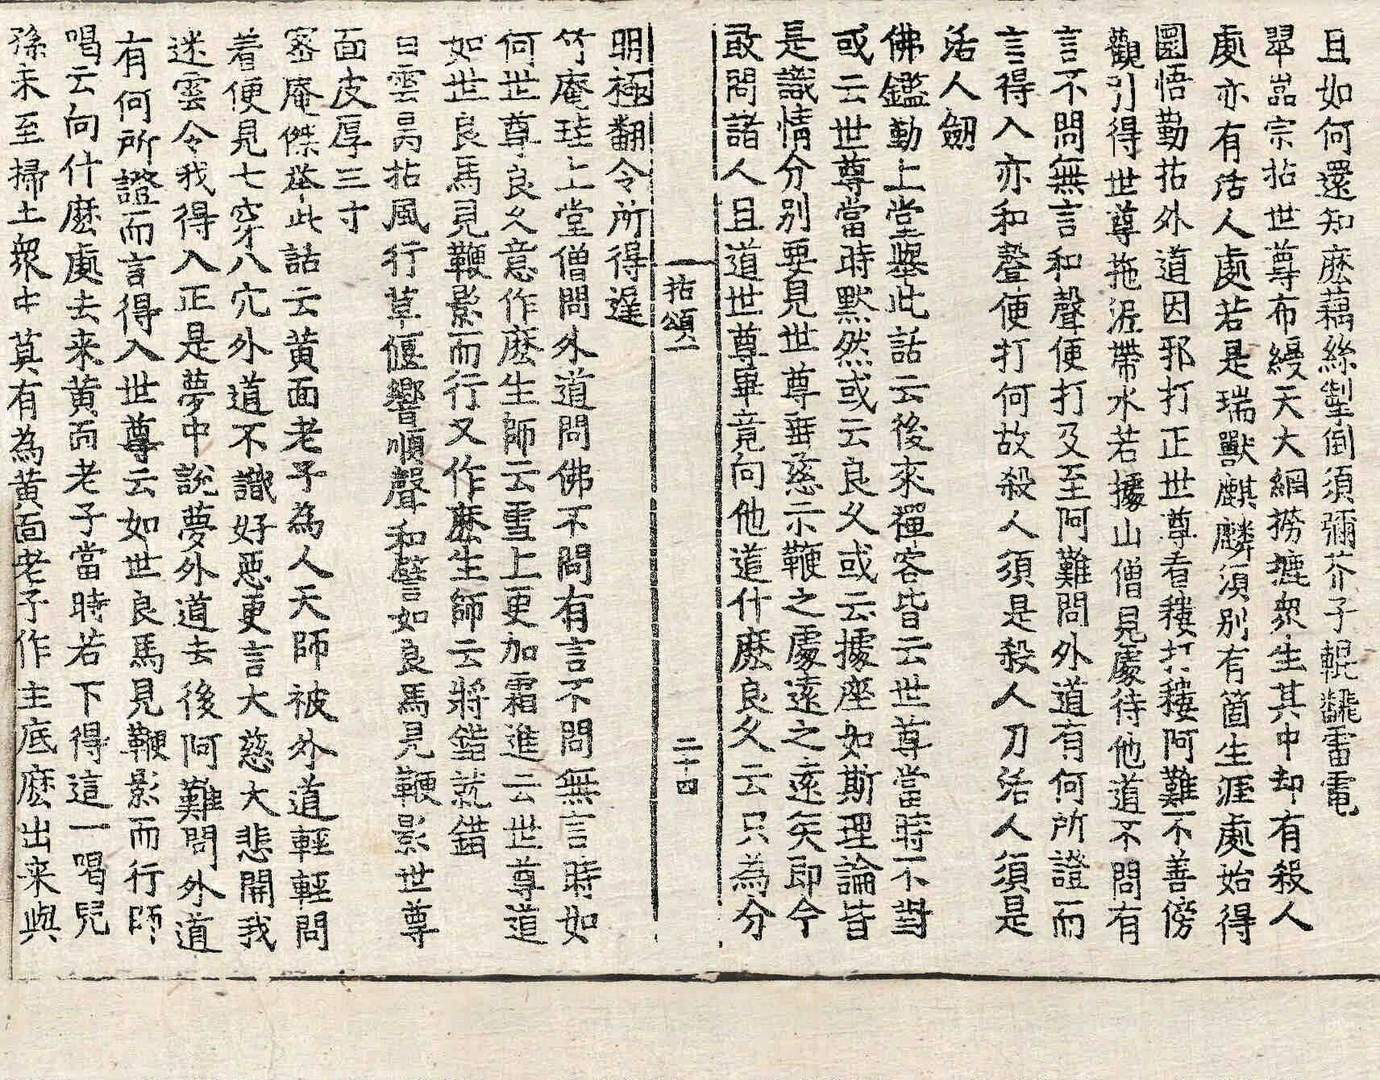 且如何還知麽藕絲掣倒須彌芥子輥飜雷電
翠嵓宗拈世尊布縵天大網撈摝衆生其中却有殺人
處亦有活人處若是瑞獸麒麟須別有箇生涯處始得
圜悟勤拈外道因邪打正世尊看樓打樓阿難不善傍
觀引得世尊拖泥帶水若據山僧見處待他道不問有
言不問無言和聲便打及至阿難問外道有何所證而
言得入亦和聲便打何故殺人須是殺人刀活人須是
活人劒
佛鑑勤上堂擧此話云後來禪客皆云世尊當時不對
或云世尊當時默然或云良久或云據座如斯理論皆
是識情分別要見世尊垂慈示鞭之處遠之遠矣即今
敢問諸人且道世尊畢竟向他道什麽良久云只為分
拈頌二
二十四
明極翻令所得遲
竹庵珪上堂僧問外道問佛不問有言不問無言時如
何世尊良久意作麽生師云雪上更加霜進云世尊道
如世良馬見鞭影而行又作麽生師云將錯就錯
白雲昺拈風行草偃響順聲和譬如良馬見鞭影世尊
面皮厚三寸
密庵傑举此話云黃面老子為人天師被外道輕輕問
着便見七穿八穴外道不識好惡更言大慈大悲開我
迷雲令我得入正是夢中說夢外道去後阿難問外道
有何所證而言得入世尊云如世良馬見鞭影而行師
喝云向什麽處去来黃面老子當時若下得這一喝兒
孫未至掃土衆中莫有為黃面老子作主底麽出来與